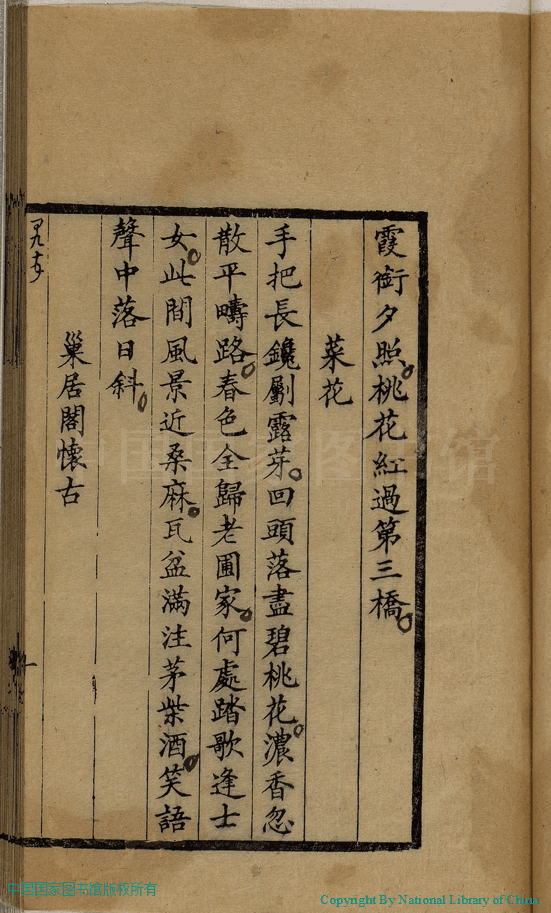 霞銜夕照桃花紅過第三橋
菜花
手把長鑱劚露芽回頭落盡碧桃花濃香忽
散平疇路春色全歸老圃家何處踏歌逢士
女此間風景近桑麻瓦盆滿注茅柴酒笑語
聲中落日斜
巢居閣懷古
中国国家图书馆版权所有
Copyright By National Library of China